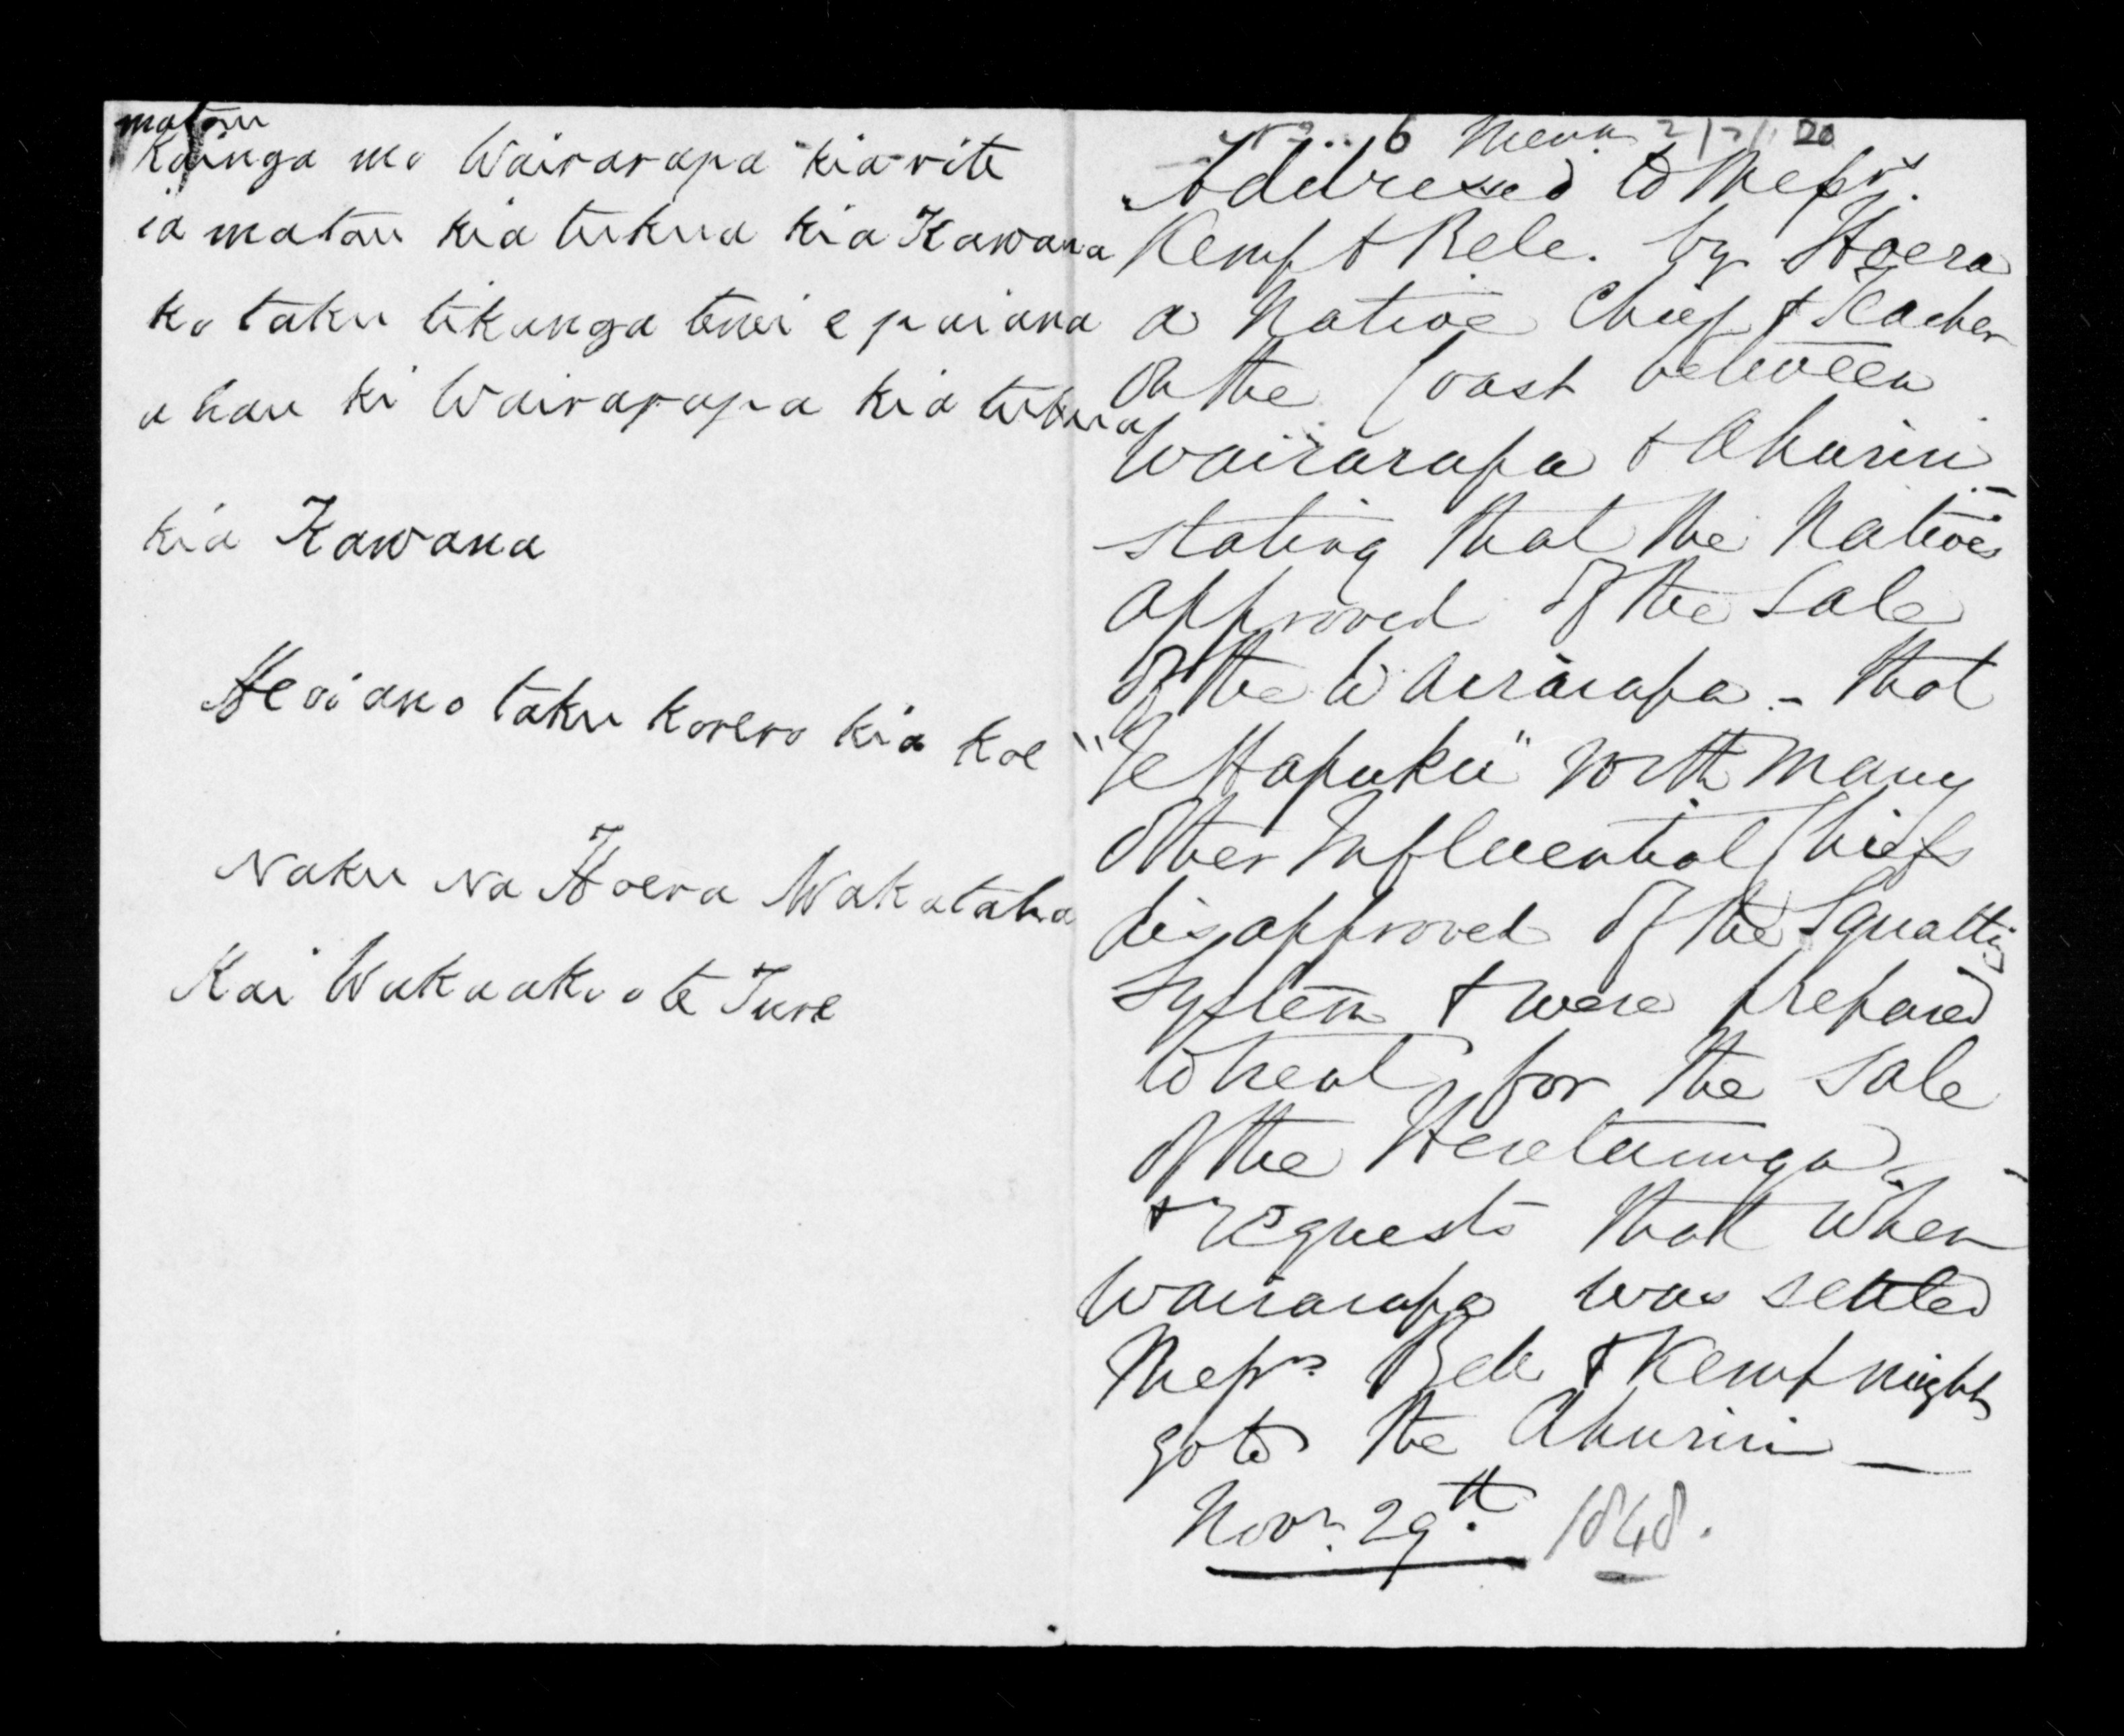 matou
Kainga mo Wairarapa kia rite
ia matou kia tukua kia Kawana
ko taku tikanga tenei e pai ana
ahau ki Wairarapa kia tukua
kia Kawana
Heoi ano taku korero kia koe
Naku Na Hoera Wakataha
Kai Wakaako o te Ture
6 20
Addressed to Messrs.
Kemp & Bele. by Hoera
a Native Chief & Teacher
on the Coast between
Wairarapa & Ahuriri -
stating that the Natives
approved of the Sale
of the Wairarapa - that
"Te Hapuku" with many
other Influential Chiefs
disapproved of the Squatting
System & were prepared
to treat for the sale
of the Heretaunga -
& requests that when
Wairarapa was settled
Messrs Bell & Kemp might
go to the Ahuriri —
Novr. 29th. 1848.